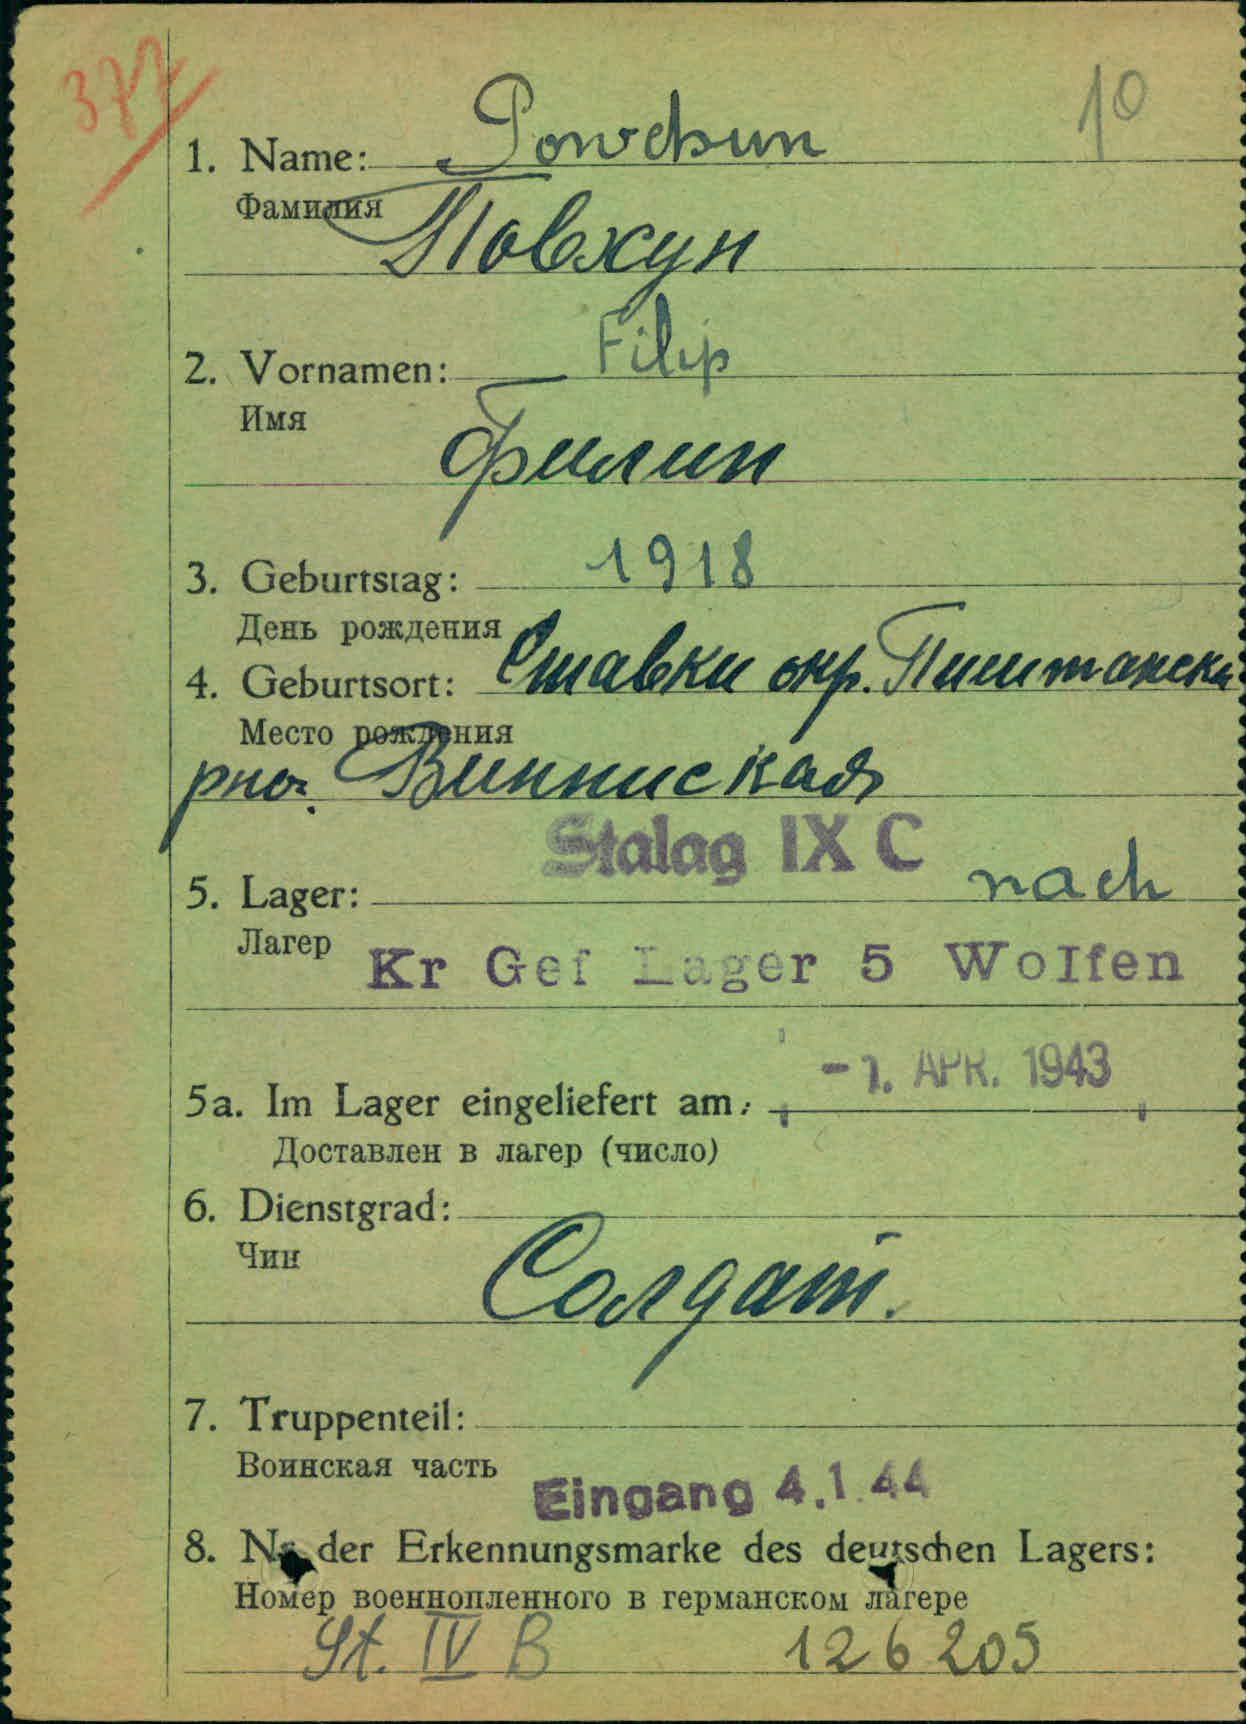 377
10
1. Name: Powchun
Фамилия
Повхун
2. Vornamen: Filip
Имя
Филип
3. Geburtstag: 1918
День рождения
4. Geburtsort: Ставки окр.
Место рождения
Винниская
Stalag IX C
5. Lager: nach
Лагер Kr Gef Lager 5 Wolfen
-1. APR. 1943
5a. Im Lager eingeliefert am:
Доставлен в лагер (число)
6. Dienstgrad:
Чин
Солдат.
7. Truppenteil:
Воинская часть
Eingang 4.1.44
8. Nr der Erkennungsmarke des deutschen Lagers:
Номер военнопленного в германском лагере
St. IV B 126205